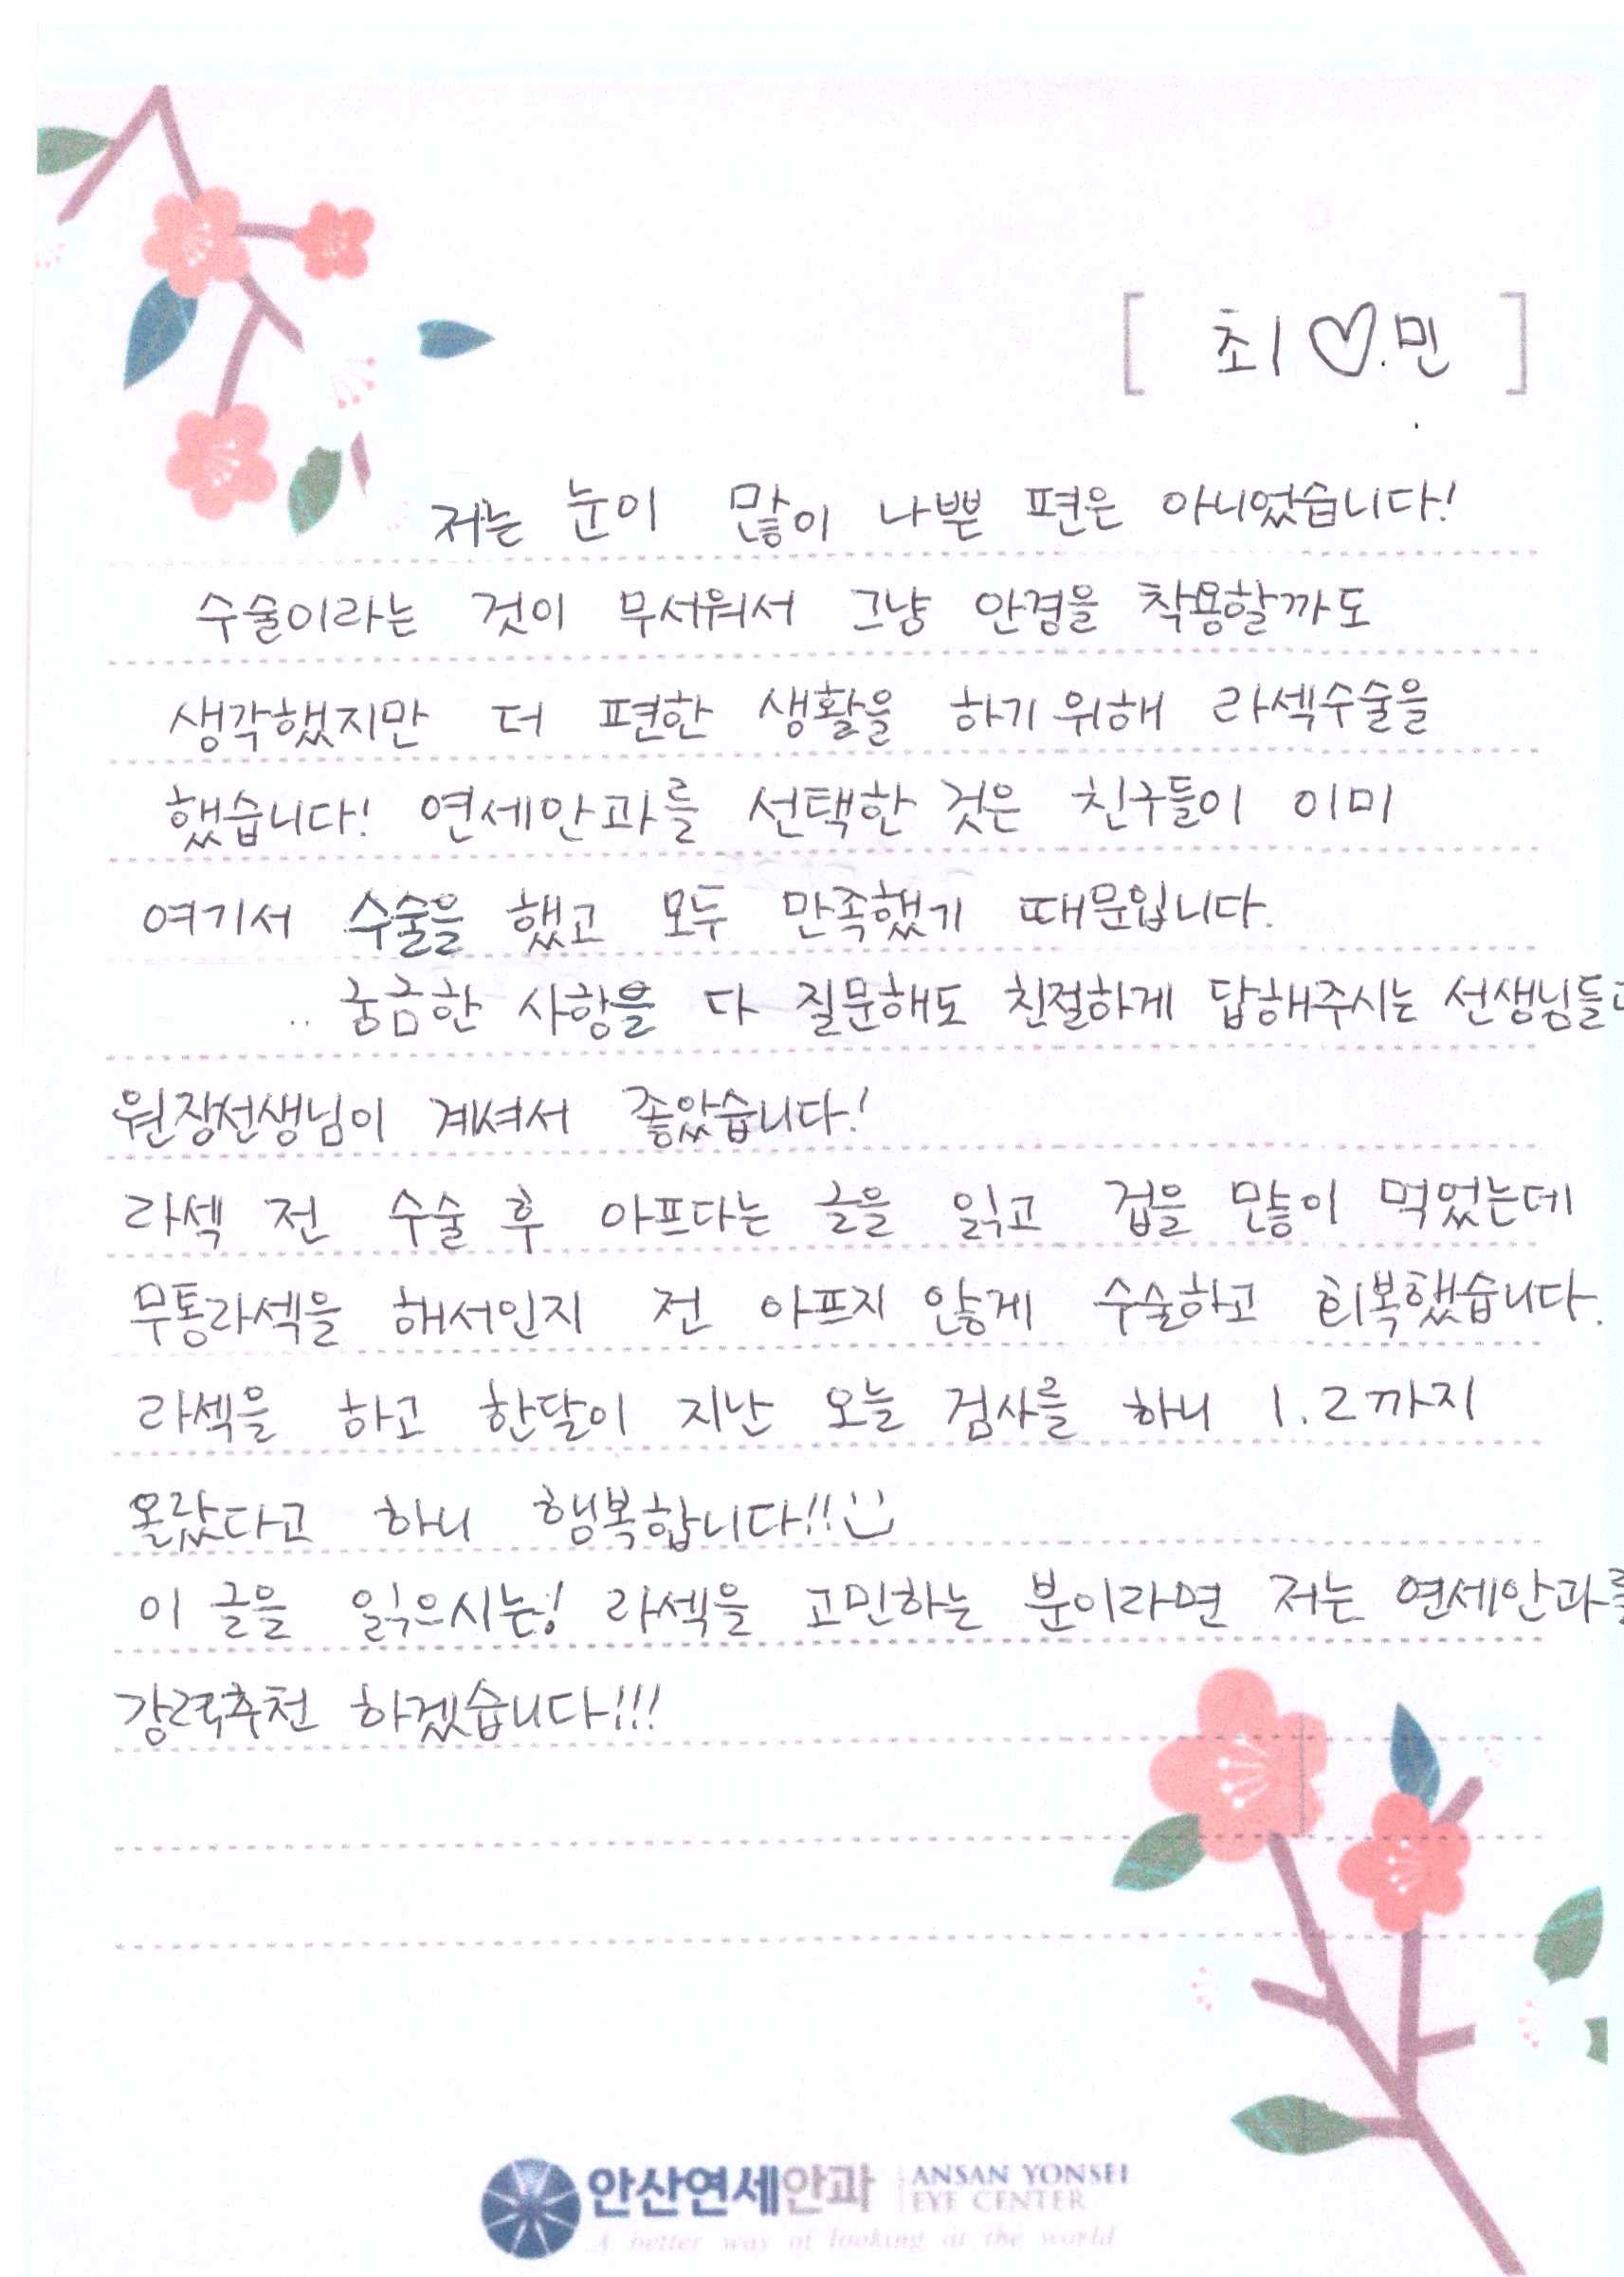 [ 최♡.민 ]
저는 눈이 많이 나쁜 편은 아니었습니다!
수술이라는 것이 무서워서 그냥 안경을 착용할까도
생각했지만 더 편한 생활을 하기 위해 라섹수술을
했습니다! 연세안과를 선택한 것은 친구들이 이미
여기서 수술을 했고 모두 만족했기 때문입니다.
.. 궁금한 사항을 다 질문해도 친절하게 답해주시는 선생님들과
원장선생님이 계셔서 좋았습니다!
라섹 전 수술 후 아프다는 글을 읽고 겁을 많이 먹었는데
무통라섹을 해서인지 전 아프지 않게 수술하고 회복했습니다.
라섹을 하고 한달이 지난 오늘 검사를 하니 1.2까지
올랐다고 하니 행복합니다!!
이 글을 읽으시는! 라섹을 고민하는 분이라면 저는 연세안과를
강력추천 하겠습니다!!!
안산연세안과 ANSAN YONSEI
EYE CENTER
A better way of looking at the world